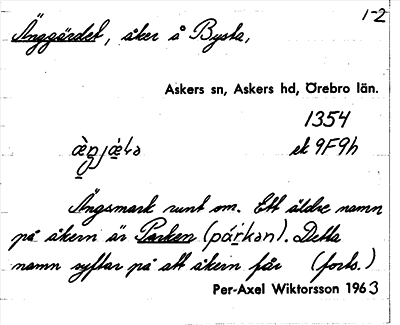 1-2
Änggärdet, åker å Bysta,
Askers sn, Askers hd, Örebro län.
1354
ek 9F9h
Ängsmark runt om. Ett äldre namn
på åkern är Parken (párkan). Detta
namn syftar på att åkern får (forts.)
Per-Axel Wiktorsson 1963